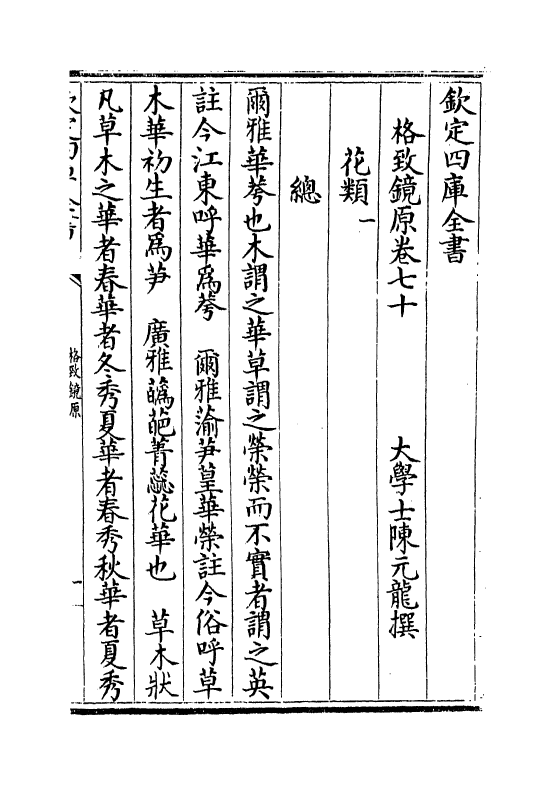 欽定四庫全書
格致鏡原卷七十
大學士陳元龍撰
花類一
總
爾雅華荂也木謂之華草謂之榮榮而不實者謂之英
註今江東呼華爲荂　爾雅蕍芛葟華榮註今俗呼草
木華初生者爲芛　廣雅蘤葩菁蘂花華也　草木狀
凡草木之華者春華者冬秀夏華者春秀秋華者夏秀
格致鏡原
一